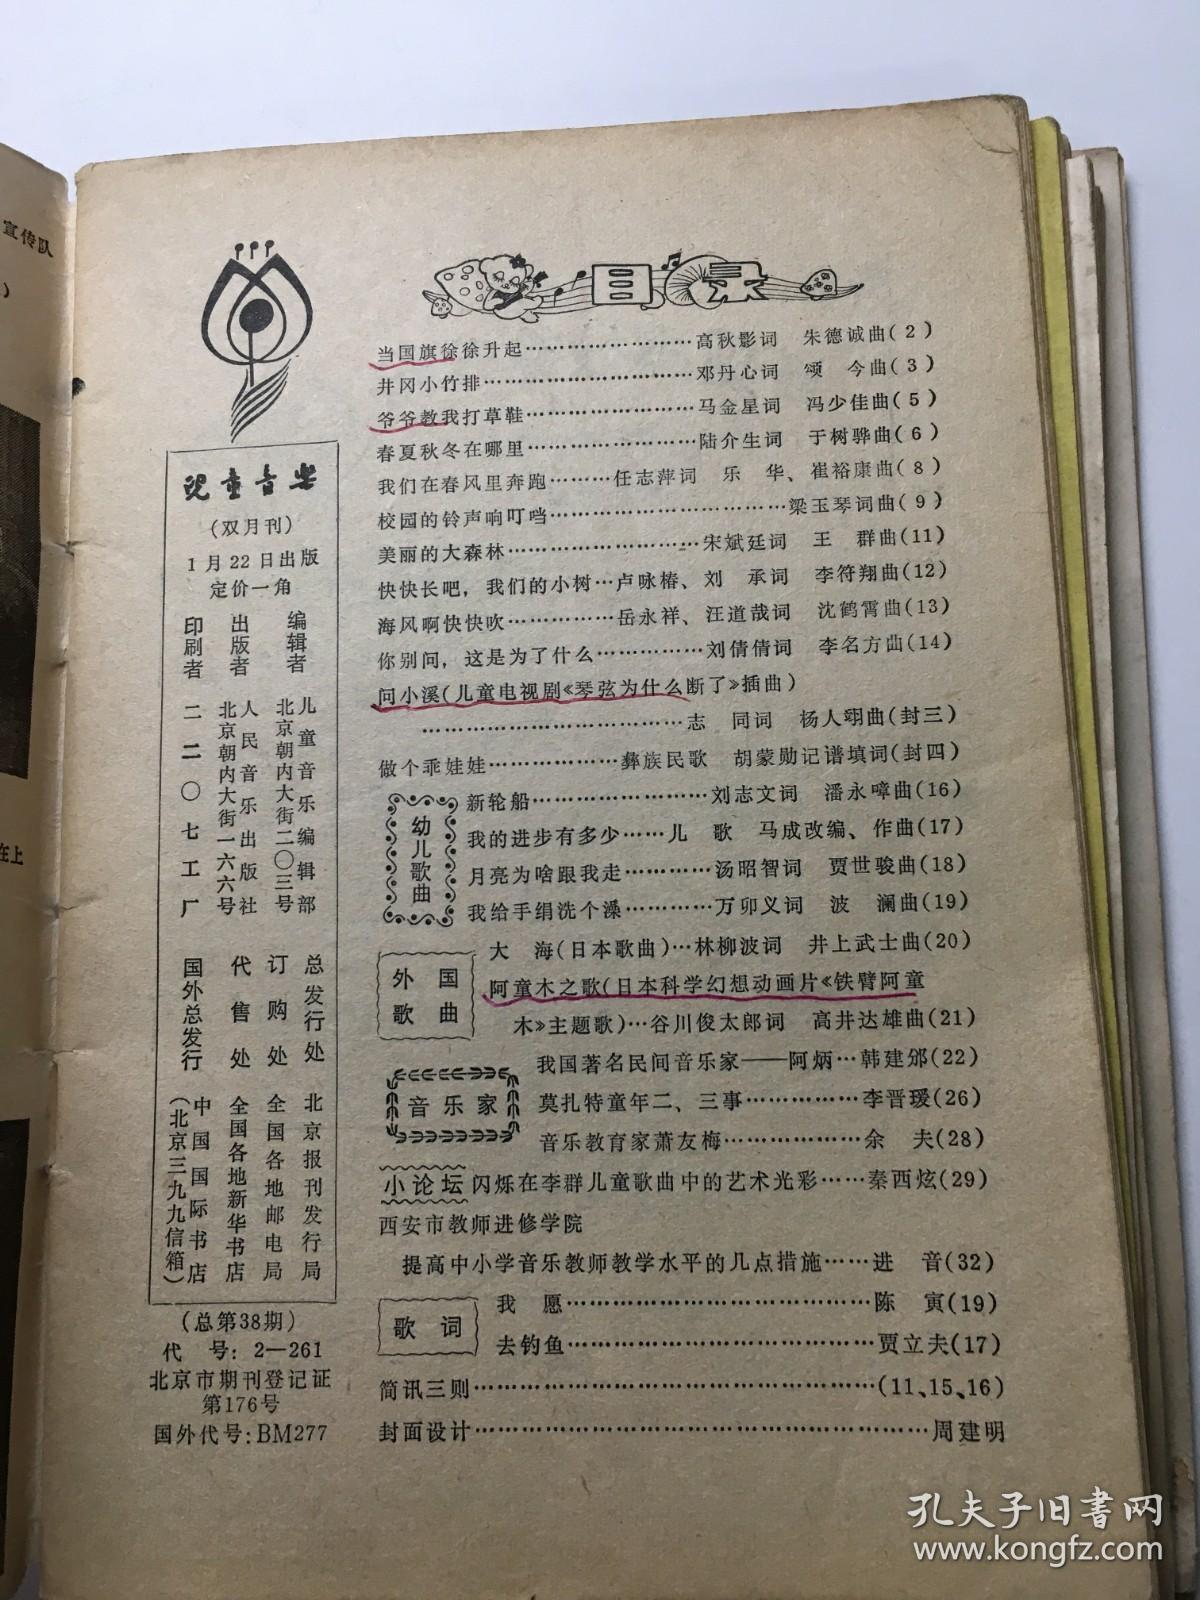 宣传队
)
在上
目录
当国旗徐徐升起……………………高秋影词 朱德诚曲(2)
井冈小竹排………………………邓丹心词 颂 今曲(3)
爷爷教我打草鞋…………………马金星词 冯少佳曲(5)
春夏秋冬在哪里…………………陆介生词 于树骅曲(6)
我们在春风里奔跑………任志萍词 乐 华、崔裕康曲(8)
校园的铃声响叮当……………………………梁玉琴词曲(9)
美丽的大森林………………………宋斌廷词 王 群曲(11)
快快长吧，我们的小树…卢咏椿、刘 承词 李符翔曲(12)
海风啊快快吹……………岳永祥、汪道哉词 沈鹤霄曲(13)
你别问，这是为了什么……………刘倩倩词 李名方曲(14)
问小溪(儿童电视剧《琴弦为什么断了》插曲)
……………………………志 同词 杨人翊曲(封三)
做个乖娃娃………………彝族民歌 胡蒙勋记谱填词(封四)
幼儿歌曲
新轮船……………………刘志文词 潘永嶂曲(16)
我的进步有多少……儿 歌 马成改编、作曲(17)
月亮为啥跟我走…………汤昭智词 贾世骏曲(18)
我给手绢洗个澡…………万卯义词 波 澜曲(19)
外国歌曲
大 海(日本歌曲)…林柳波词 井上武士曲(20)
阿童木之歌(日本科学幻想动画片《铁臂阿童
木》主题歌)…谷川俊太郎词 高井达雄曲(21)
音乐家
我国著名民间音乐家——阿炳…韩建邠(22)
莫扎特童年二、三事……………李晋瑗(26)
音乐教育家萧友梅………………余 夫(28)
小论坛 闪烁在李群儿童歌曲中的艺术光彩……秦西炫(29)
西安市教师进修学院
提高中小学音乐教师教学水平的几点措施……进 音(32)
歌词
我 愿……………………………………陈 寅(19)
去钓鱼……………………………………贾立夫(17)
简讯三则…………………………………………(11、15、16)
封面设计……………………………………………………周建明
儿童音乐
(双月刊)
1月22日出版
定价一角
编辑者 儿童音乐编辑部
北京朝内大街二〇三号
出版者 人民音乐出版社
北京朝内大街一六六号
印刷者 二二〇七工厂
总发行处 北京报刊发行局
订购处 全国各地邮电局
代售处 全国各地新华书店
国外总发行 中国国际书店
(北京三九九信箱)
(总第38期)
代 号：2—261
北京市期刊登记证
第176号
国外代号：BM277
孔夫子旧书网
www.kongfz.com